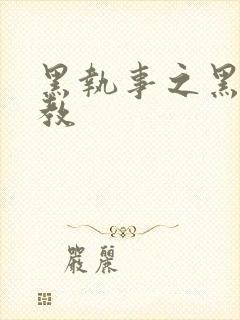 黑執事之黑
教
嚴麗